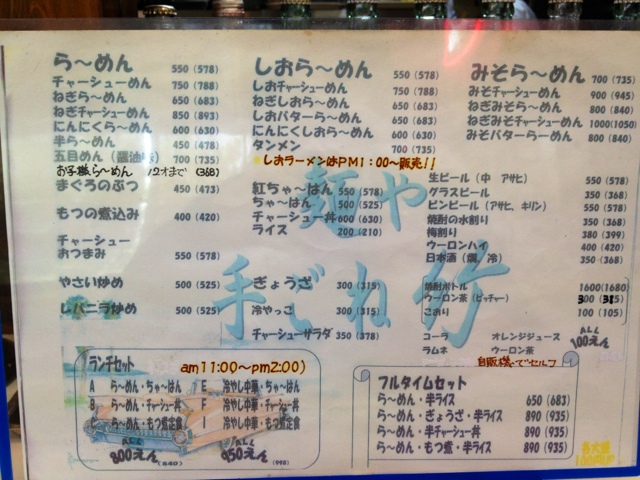 ら～めん 550 (578)
チャーシューめん 750 (788)
ねぎら～めん 650 (683)
ねぎチャーシューめん 850 (893)
にんにくら～めん 600 (630)
半ら～めん 450 (478)
五目めん (醤油味) 700 (735)
お子様ら～めん 12才まで (368)
まぐろのぶつ 450 (473)
もつの煮込み 400 (420)
チャーシュー
おつまみ 550 (578)
やさい炒め 500 (525)
レバニラ炒め 500 (525)
しおら～めん 550 (578)
しおチャーシューめん 750 (788)
ねぎしおら～めん 650 (683)
しおバターら～めん 650 (683)
にんにくしおら～めん 600 (630)
タンメン 700 (735)
しおラーメンはPM1：00～販売!!
紅ちゃ～はん 550 (578)
ちゃ～はん 500 (525)
チャーシュー丼 600 (630)
ライス 200 (210)
ぎょうざ 300 (315)
冷やっこ 300 (315)
チャーシューサラダ 350 (378)
みそら～めん 700 (735)
みそチャーシューめん 900 (945)
ねぎみそら～めん 800 (840)
ねぎみそチャーシューめん 1000(1050)
みそバターらーめん 800 (840)
生ビール (中 アサヒ) 550 (578)
グラスビール 350 (368)
ビンビール (アサヒ、キリン) 550 (578)
焼酎の水割り 350 (368)
梅割り 380 (399)
ウーロンハイ 400 (420)
日本酒 (燗、冷) 350 (368)
焼酎ボトル 1600(1680)
ウーロン茶 (ピッチャー) 300 (315)
こおり 100 (105)
コーラ オレンジジュース
ラムネ ウーロン茶
ALL
100えん
自販機でセルフ
麺や
手ごね竹
ランチセット am11:00～pm2:00)
A ら～めん・ちゃ～はん E 冷やし中華・ちゃ～はん
B ら～めん・チャーシュー丼 F 冷やし中華・チャーシュー丼
C ら～めん・もつ煮定食 I 冷やし中華・もつ煮定食
ALL 800えん (840) ALL 950えん (998)
フルタイムセット
ら～めん・半ライス 650 (683)
ら～めん・ぎょうざ・半ライス 890 (935)
ら～めん・半チャーシュー丼 890 (935)
ら～めん・もつ煮・半ライス 890 (935)